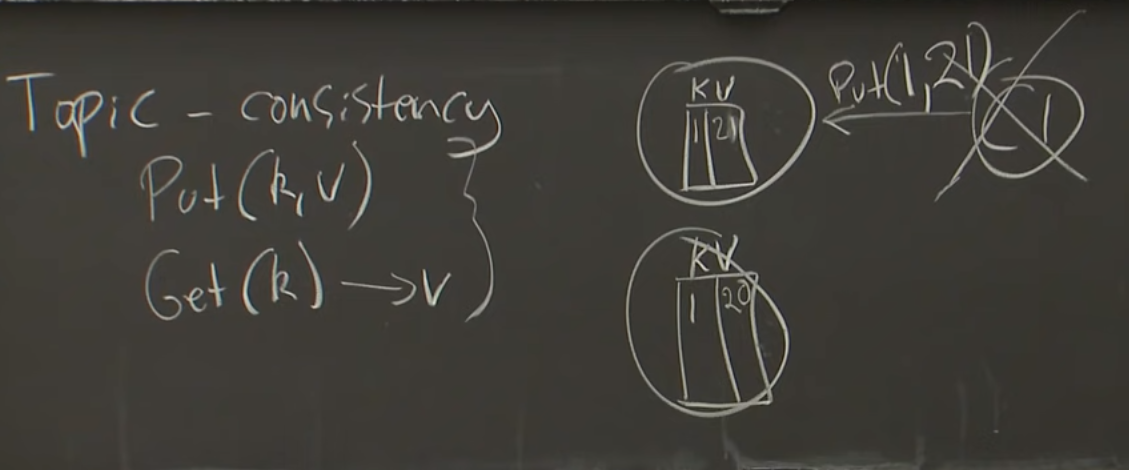 Topic - consistency
Put(k,v)
Get(k) → v
KV
1 21
Put(1,21)
C1
KV
1 20